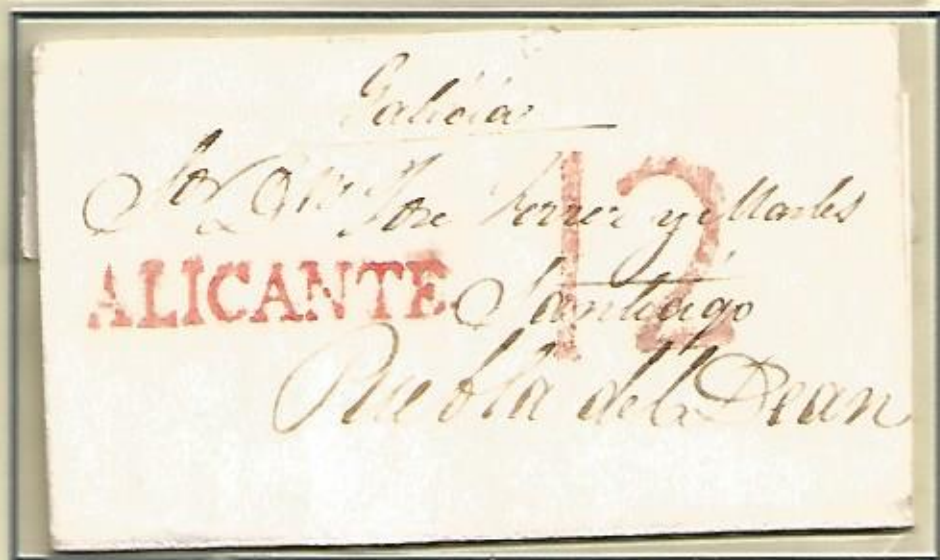 Galicia
Sor Dn Jose Ferrer y Martes
12
ALICANTE
Santiago
Puebla del Dean